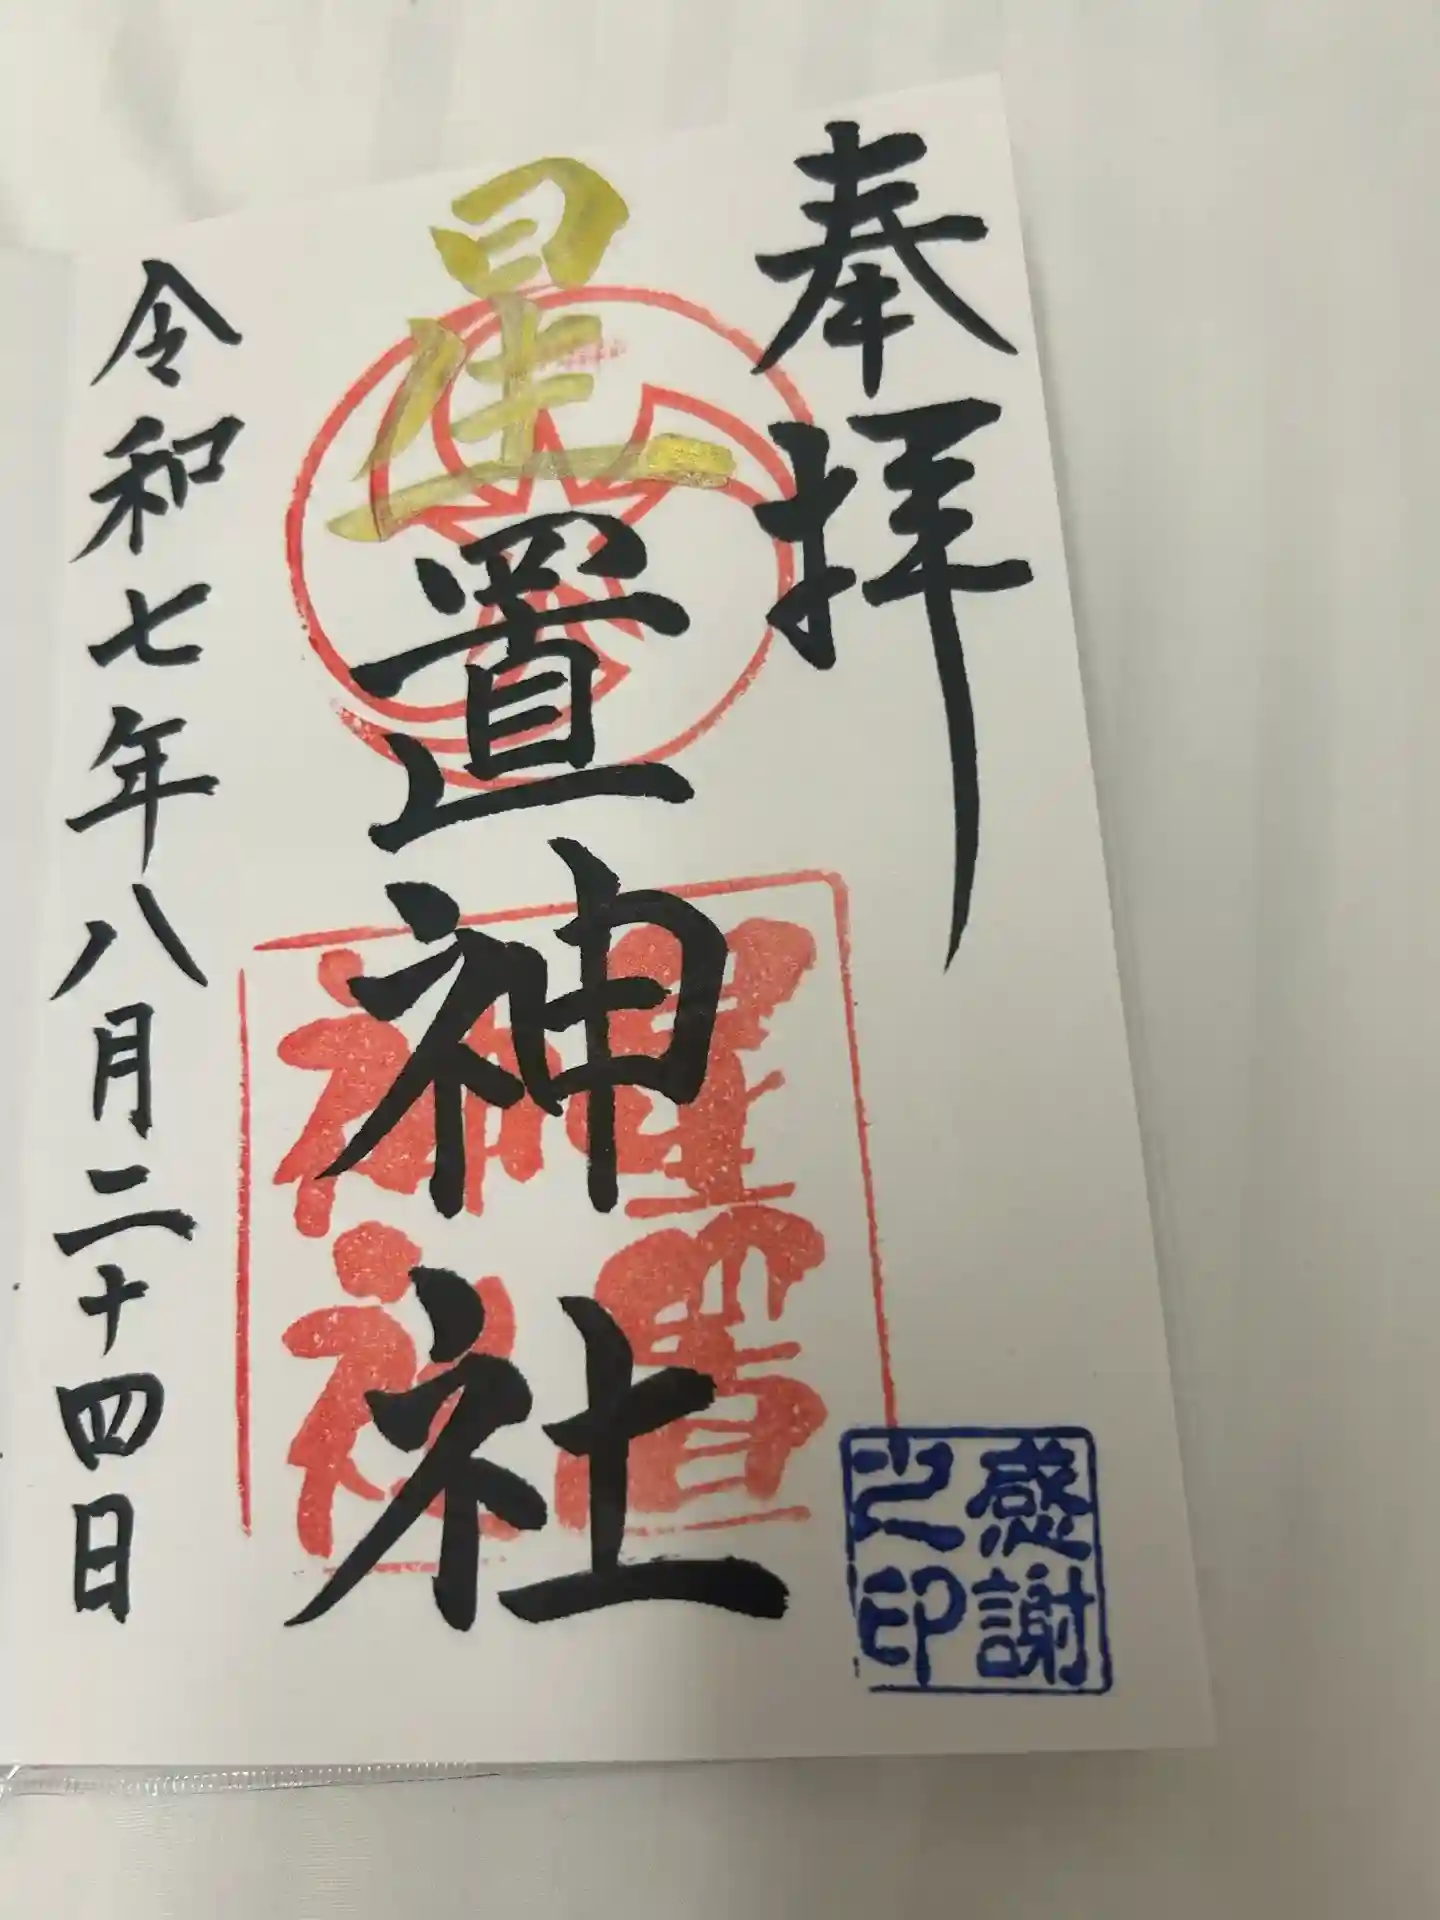 奉拝
星置神社
星置
神社
感謝
之印
令和七年八月二十四日